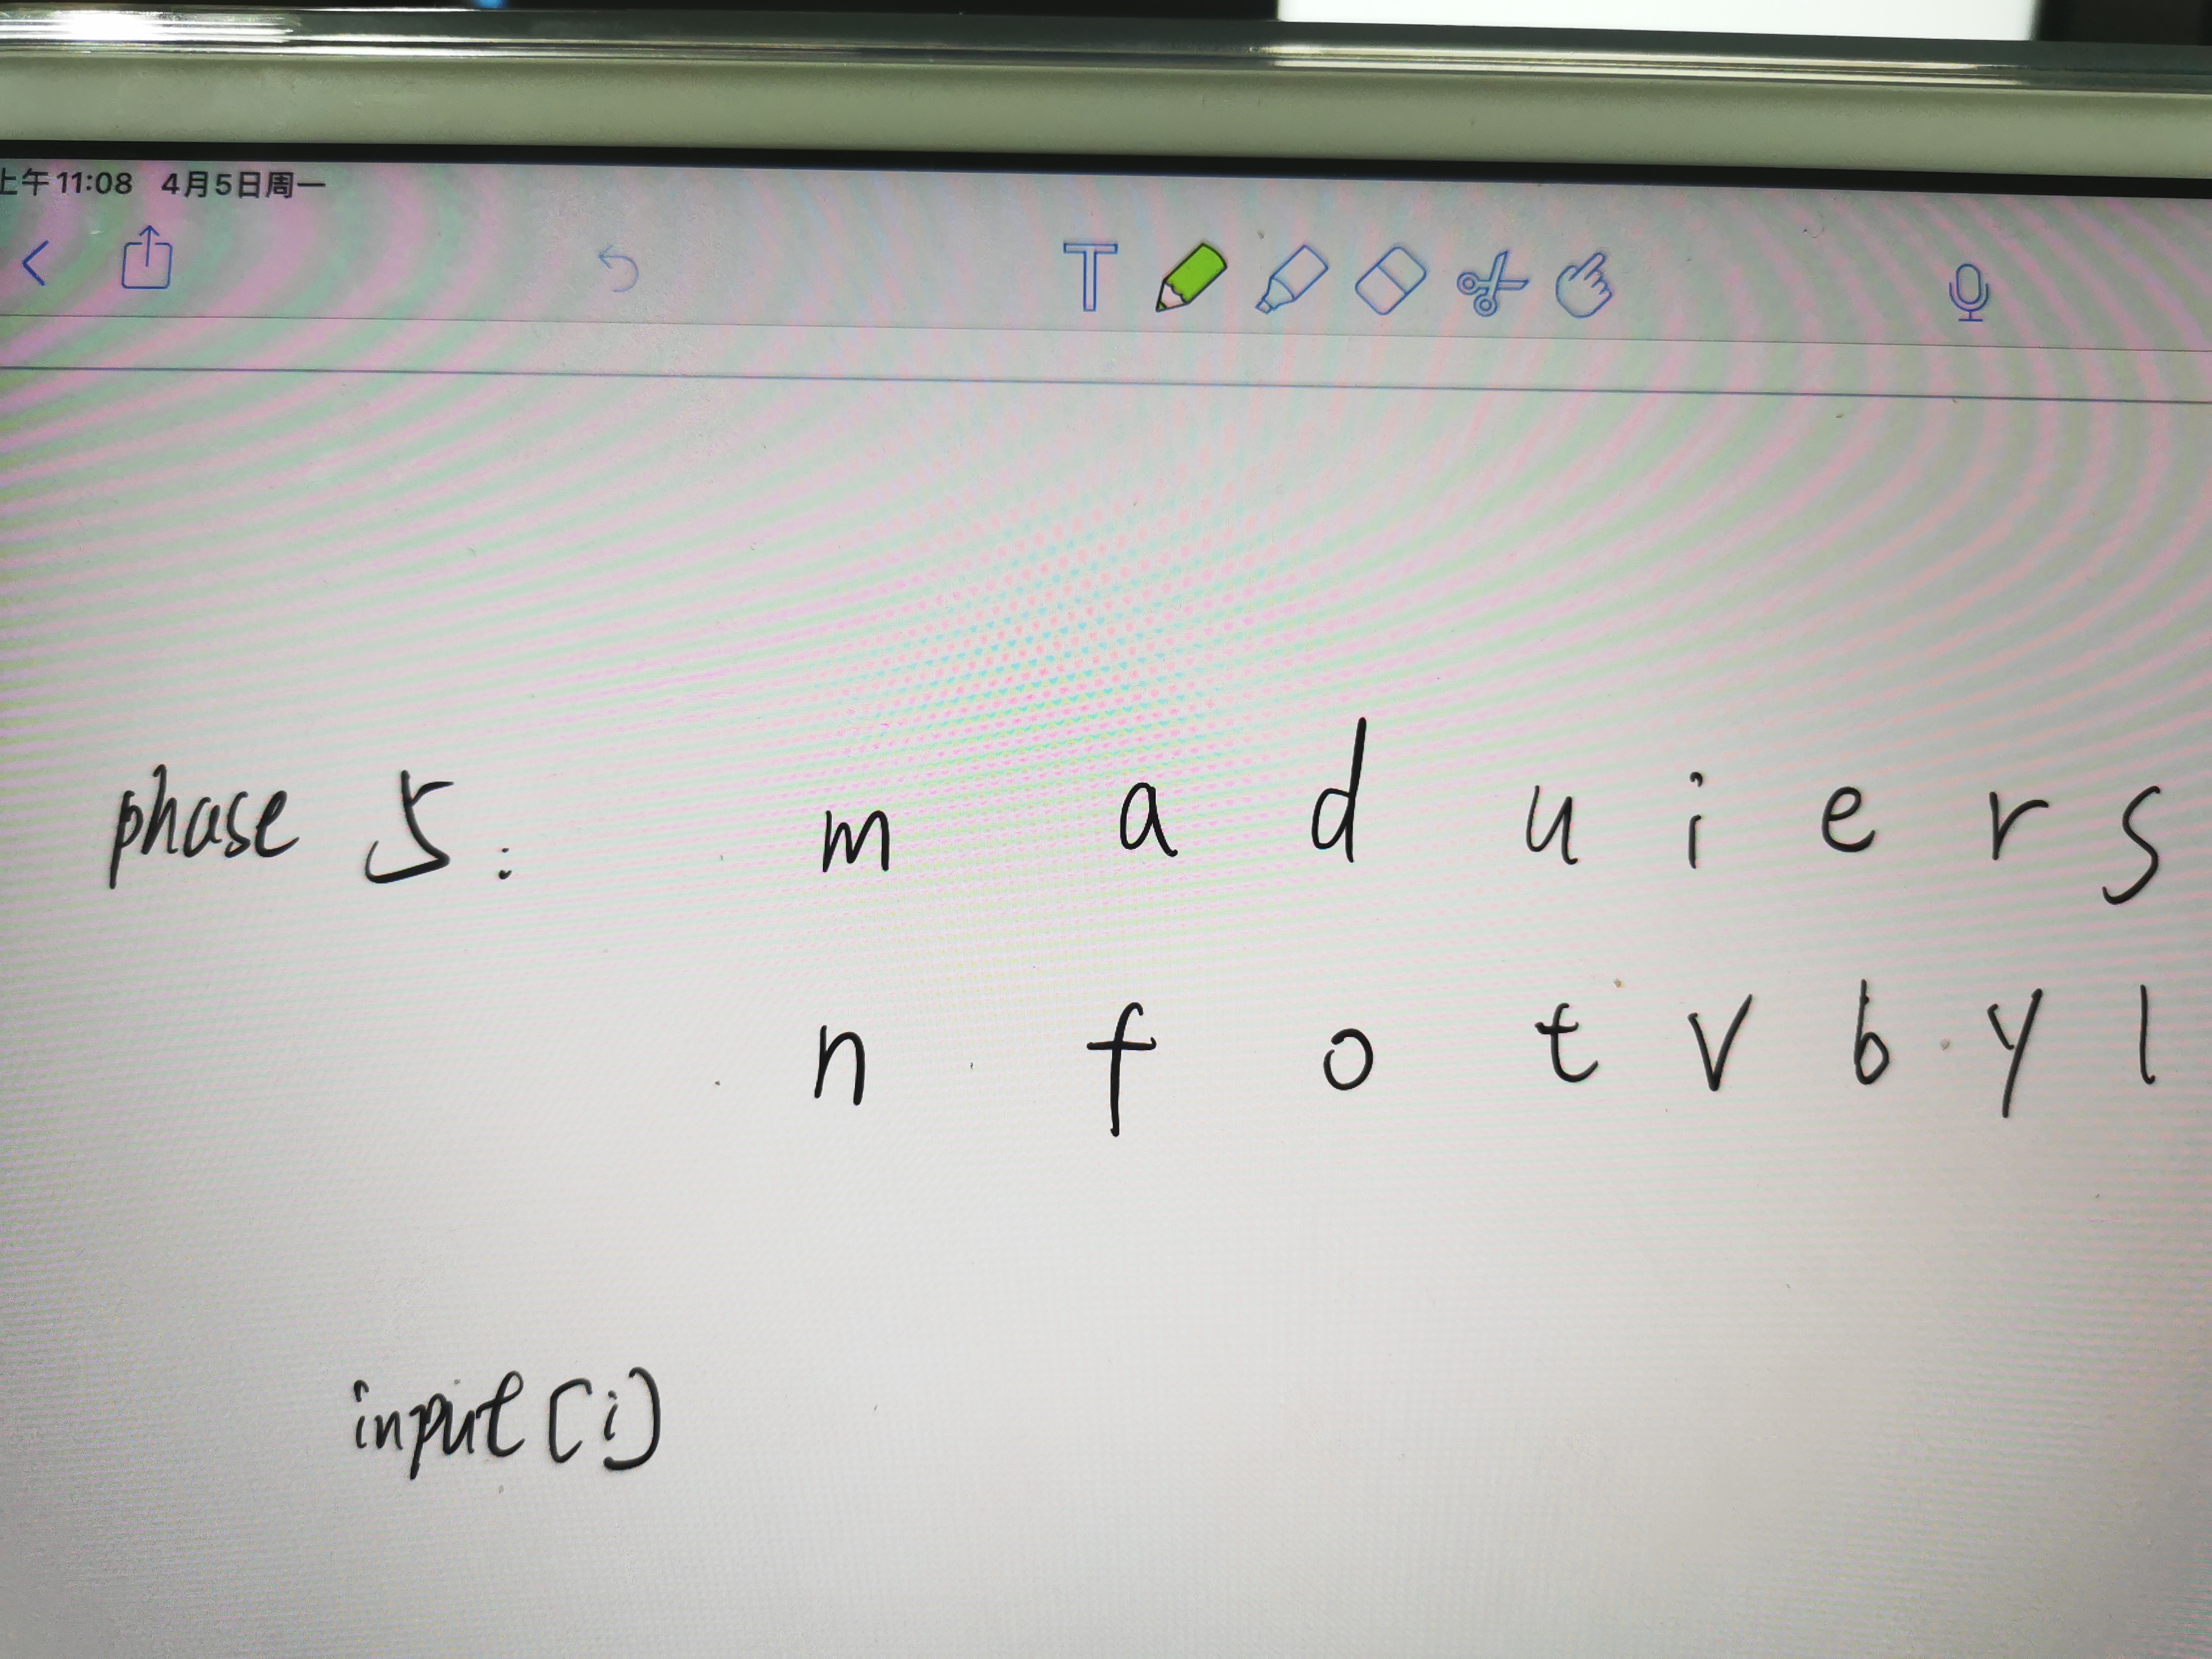 上午11:08 4月5日周一
T
phase 5: m a d u i e r s
n f o t v b y l
input[i]